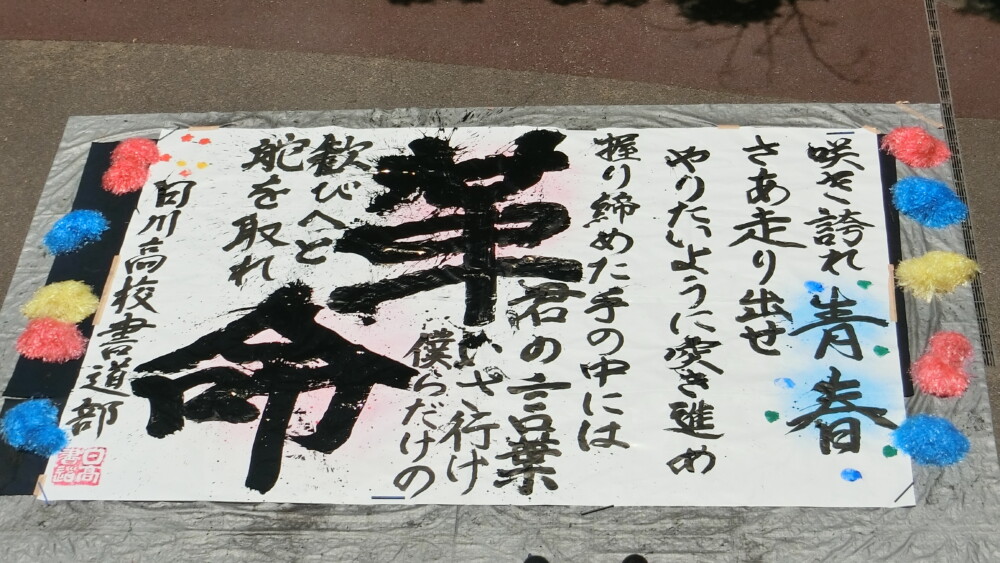 咲き誇れ青春
さあ走り出せ
やりたいように突き進め
握り締めた手の中には
君の言葉
いざ行け
僕らだけの
革命
歓びへと
舵を取れ
日川高校書道部
日高